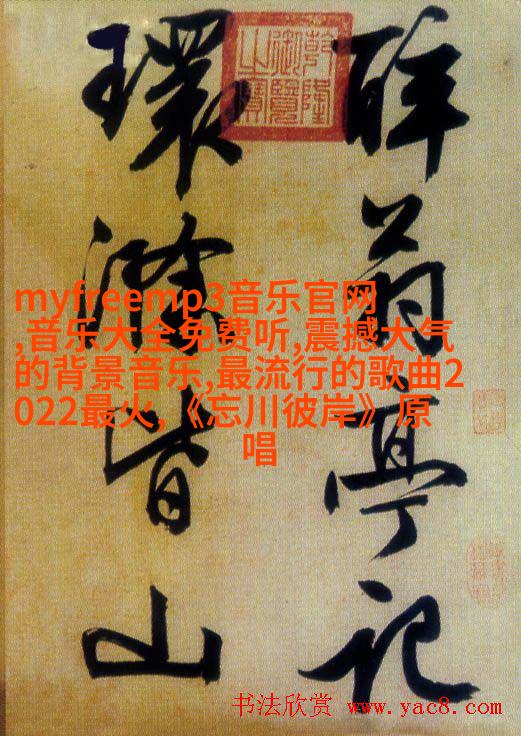 醉翁亭记
環滁皆山
乾隆御覽之寶
myfreemp3音乐官网
,音乐大全免费听,震撼大气
的背景音乐,最流行的歌曲2
022最火,《忘川彼岸》原
唱
书法欣赏 www.yac8.com